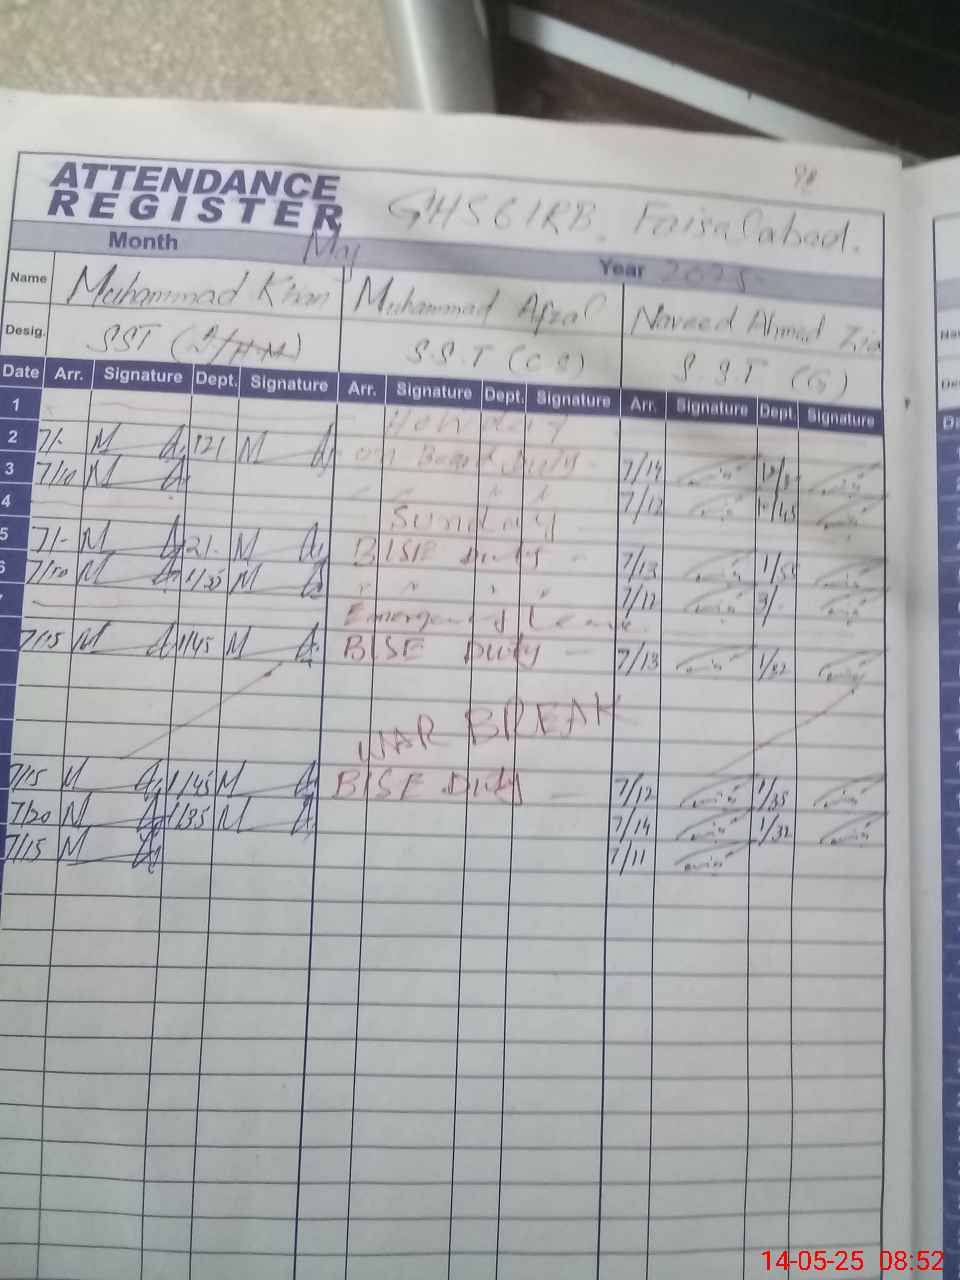 98
ATTENDANCE
REGISTER
GHS 61RB. Faisalabad.
Month May Year 2025
Name Muhammad Khan Muhammad Afzal Naveed Ahmad Zia
Desig. SST (I/HM) S.S.T (C.S) S.S.T (G)
Date Arr. Signature Dept. Signature Arr. Signature Dept. Signature Arr. Signature Dept. Signature
1
2 7/- on Board Duty - 7/14
3 7/10 " " " " 7/12 12/45
4 Sunday
5 7/- BISE Duty - 7/13 1/55
6 7/10 1/35 " " " " 7/12 3/-
Emergency Leave
7/15 1/45 BISE Duty - 7/13 1/32
WAR BREAK
7/15 1/45 BISE Duty - 7/12 1/35
7/20 1/35 7/14 1/32
7/15 7/11
14-05-25 08:52